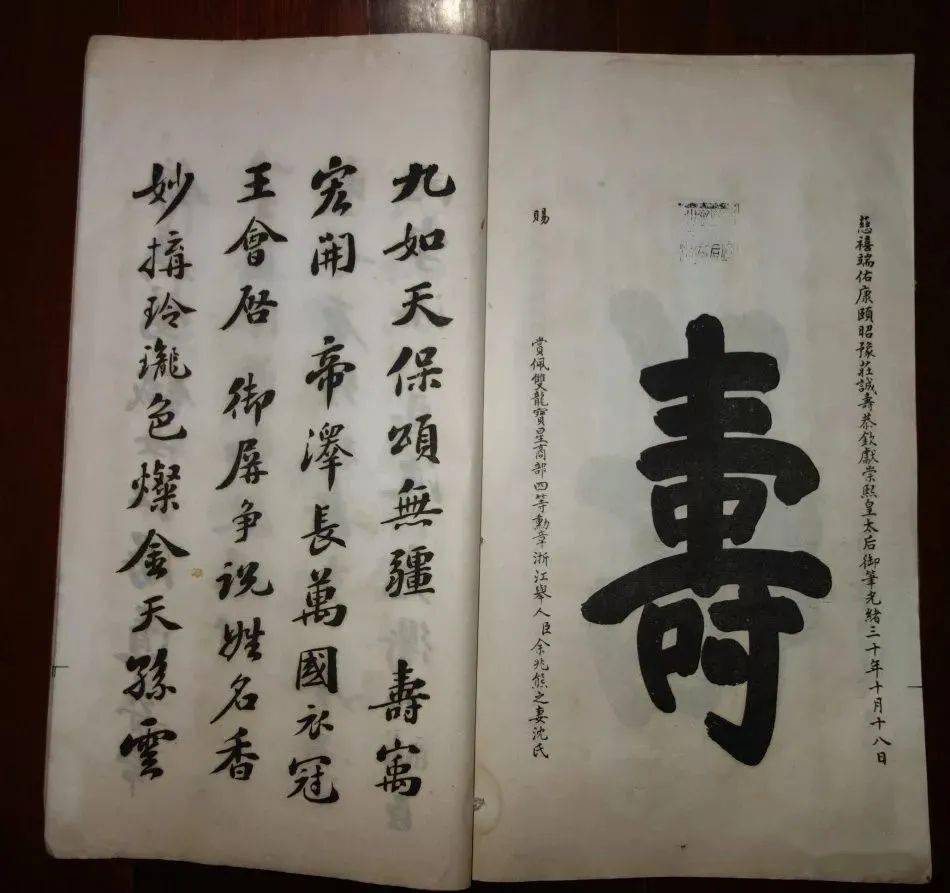 慈禧端佑康頤昭豫莊誠壽恭欽獻崇熙皇太后御筆光緒三十年十月十八日
壽
賜
賞佩雙龍寶星商部四等勳章浙江舉人臣余兆熊之妻沈氏
九如天保頌無疆 壽寓
宏開 帝澤長萬國衣冠
王會啓 御屏争説姓名香
妙搆玲瓏色燦金天孫雲